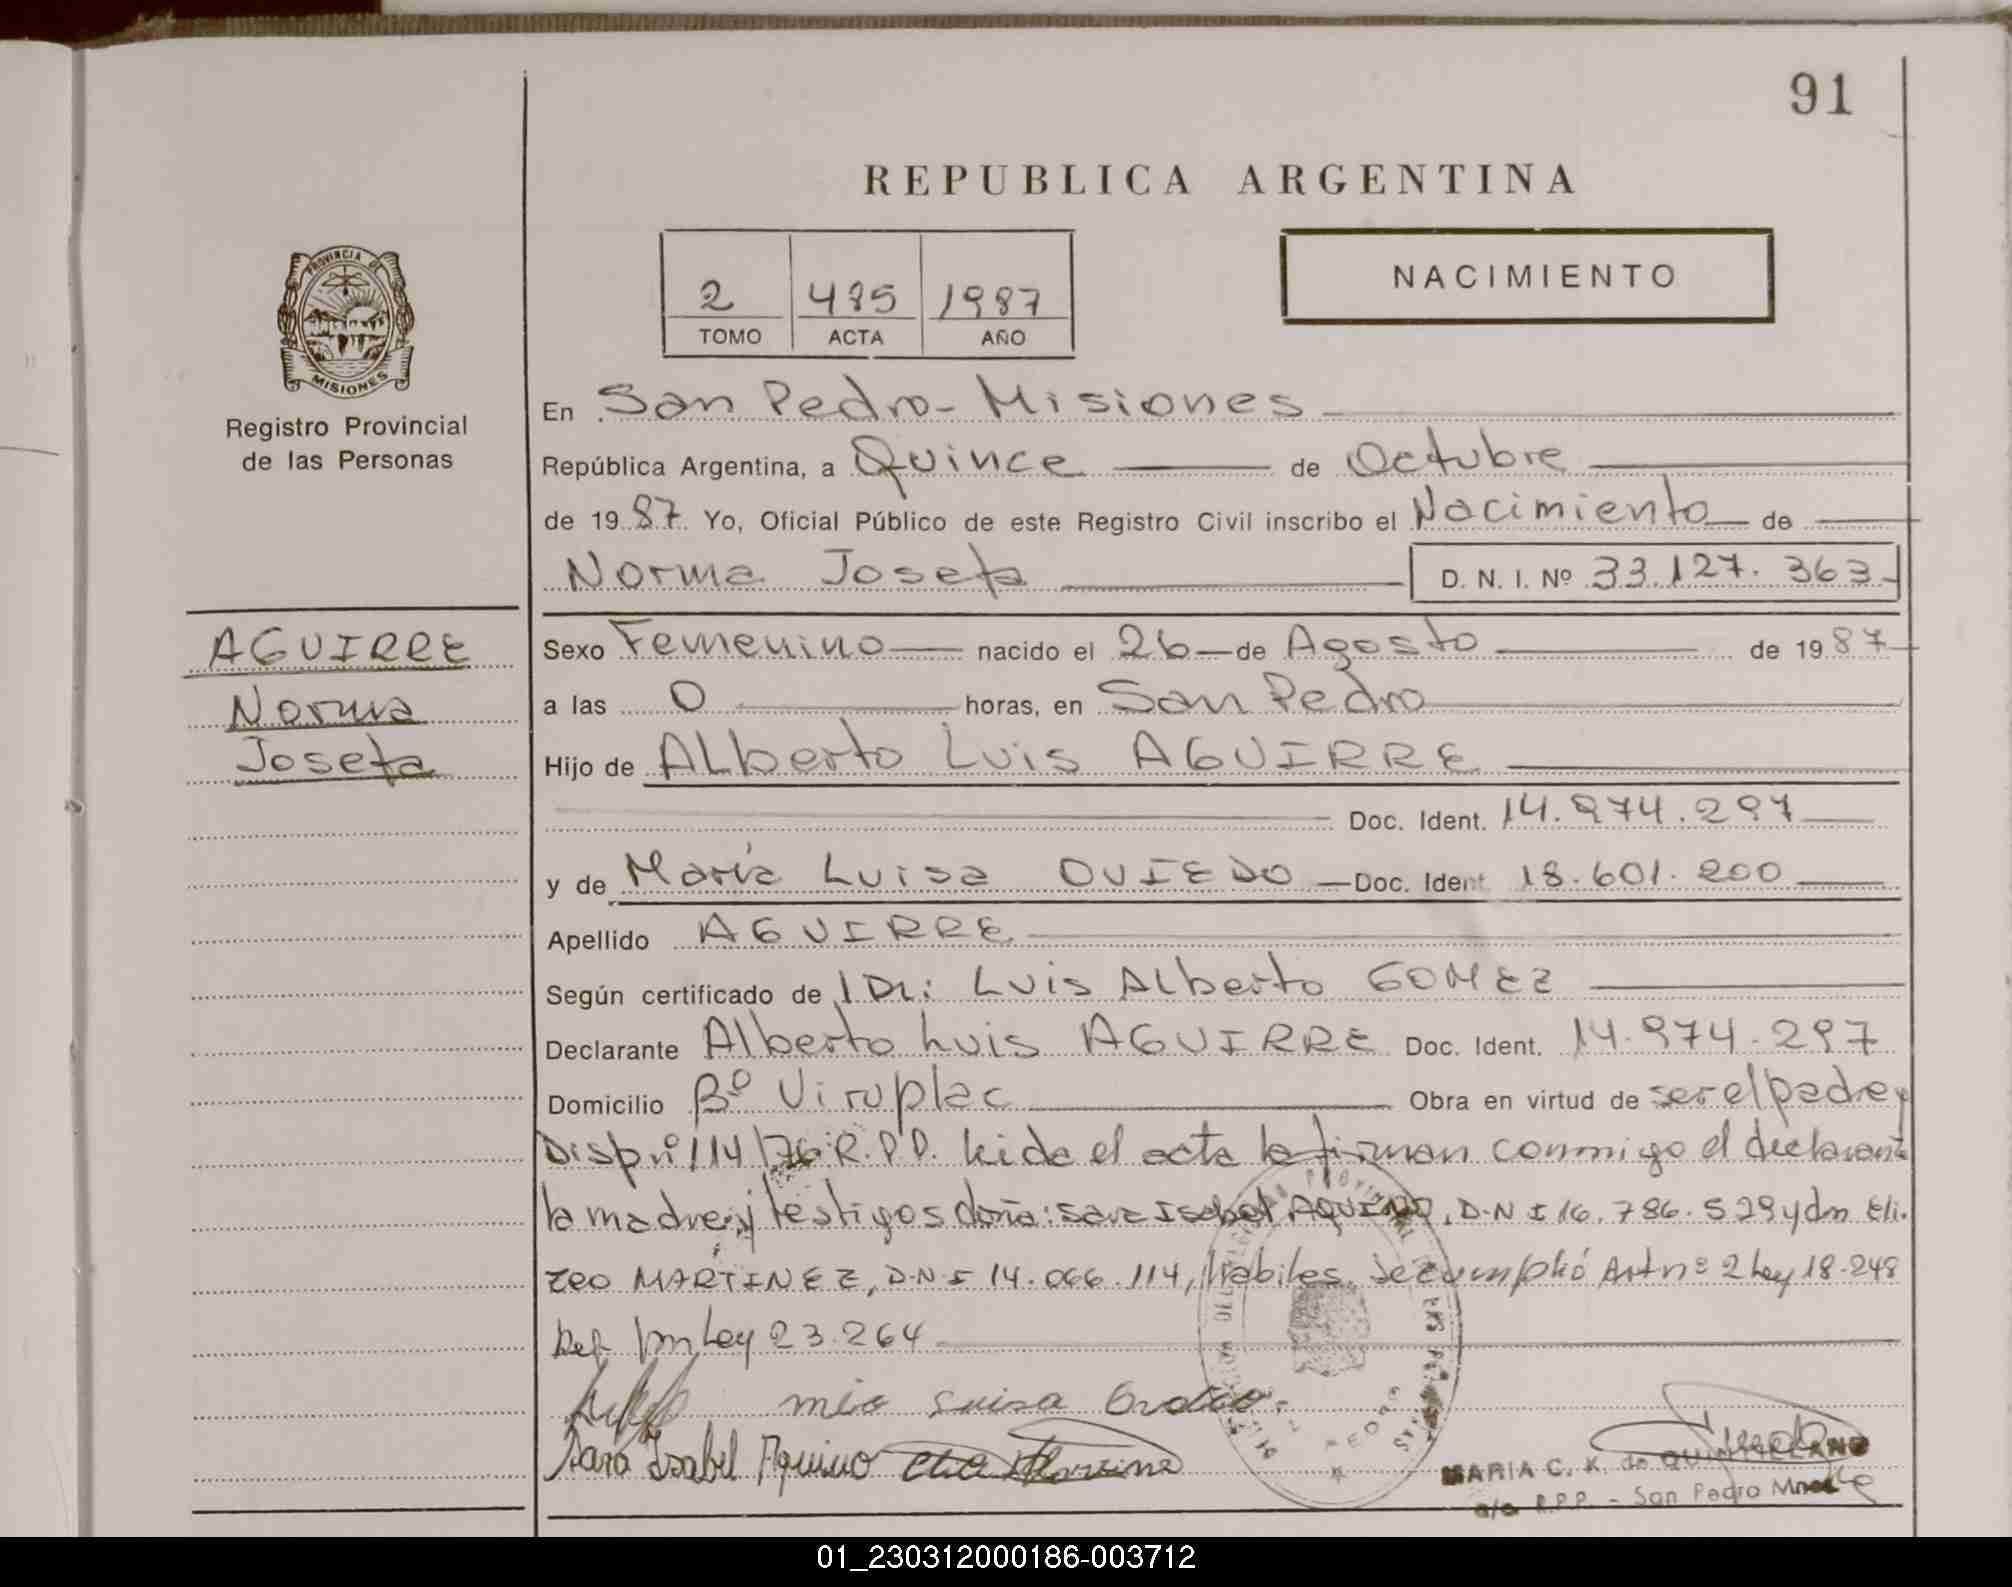 91
REPUBLICA ARGENTINA
2 485 1987
TOMO ACTA AÑO
NACIMIENTO
PROVINCIA DE
MISIONES
Registro Provincial
de las Personas
En San Pedro - Misiones
República Argentina, a Quince de Octubre
de 1987 Yo, Oficial Público de este Registro Civil inscribo el Nacimiento de
Norma Josefa D. N. I. Nº 33.127.363
AGUIRRE
Norma
Josefa
Sexo Femenino nacido el 26 de Agosto de 1987
a las 0 horas, en San Pedro
Hijo de Alberto Luis AGUIRRE
Doc. Ident. 14.974.297
y de María Luisa OVIEDO Doc. Ident 18.601.200
Apellido AGUIRRE
Según certificado de Dr: Luis Alberto GOMEZ
Declarante Alberto Luis AGUIRRE Doc. Ident. 14.974.297
Domicilio Bº Viruplac Obra en virtud de ser el padre y
Disp nº 114/76 R.P.P. leida el acta la firman conmigo el declarante
la madre y testigos doña: Sara Isabel AQUINO, D.N I 16.786.529 y dn Eli-
zeo MARTINEZ, D.N I 14.066.114, habiles. Se cumplió Art nº 2 Ley 18.248
Ley 23.264
Luisa
Sara Isabel Aquino
SAN PEDRO
MARIA C. K. de QUINTELLANO
a/c R.P.P. - San Pedro Mnes
01_230312000186-003712